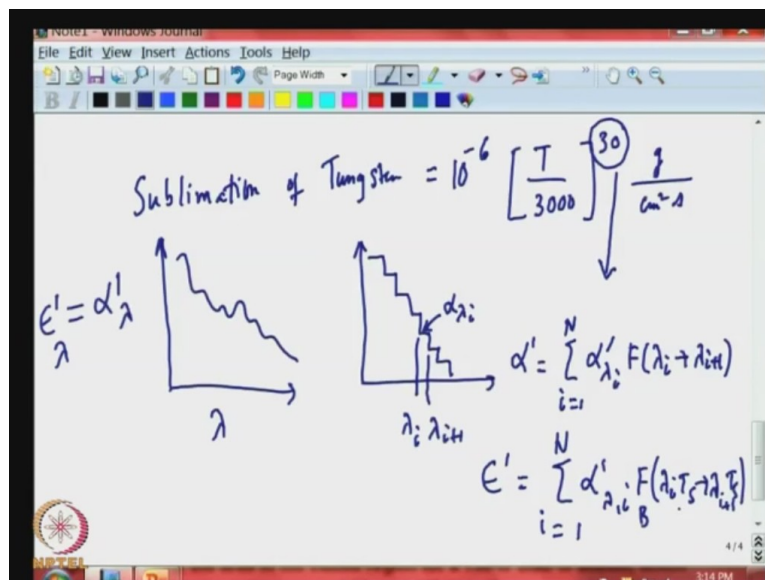 Note1 - Windows Journal
File Edit View Insert Actions Tools Help
Page Width
B I
Sublimation of Tungsten = 10^-6 [T/3000]^-30 g/cm² s
ϵ'λ = α'λ
λ
αλi
λi λi+1
α' = Σ_{i=1}^{N} α'λi F(λi→λi+1)
ϵ' = Σ_{i=1}^{N} α'λ,i F_B(λiTs→λi+1Ts)
4/4
NPTEL
3:14 PM